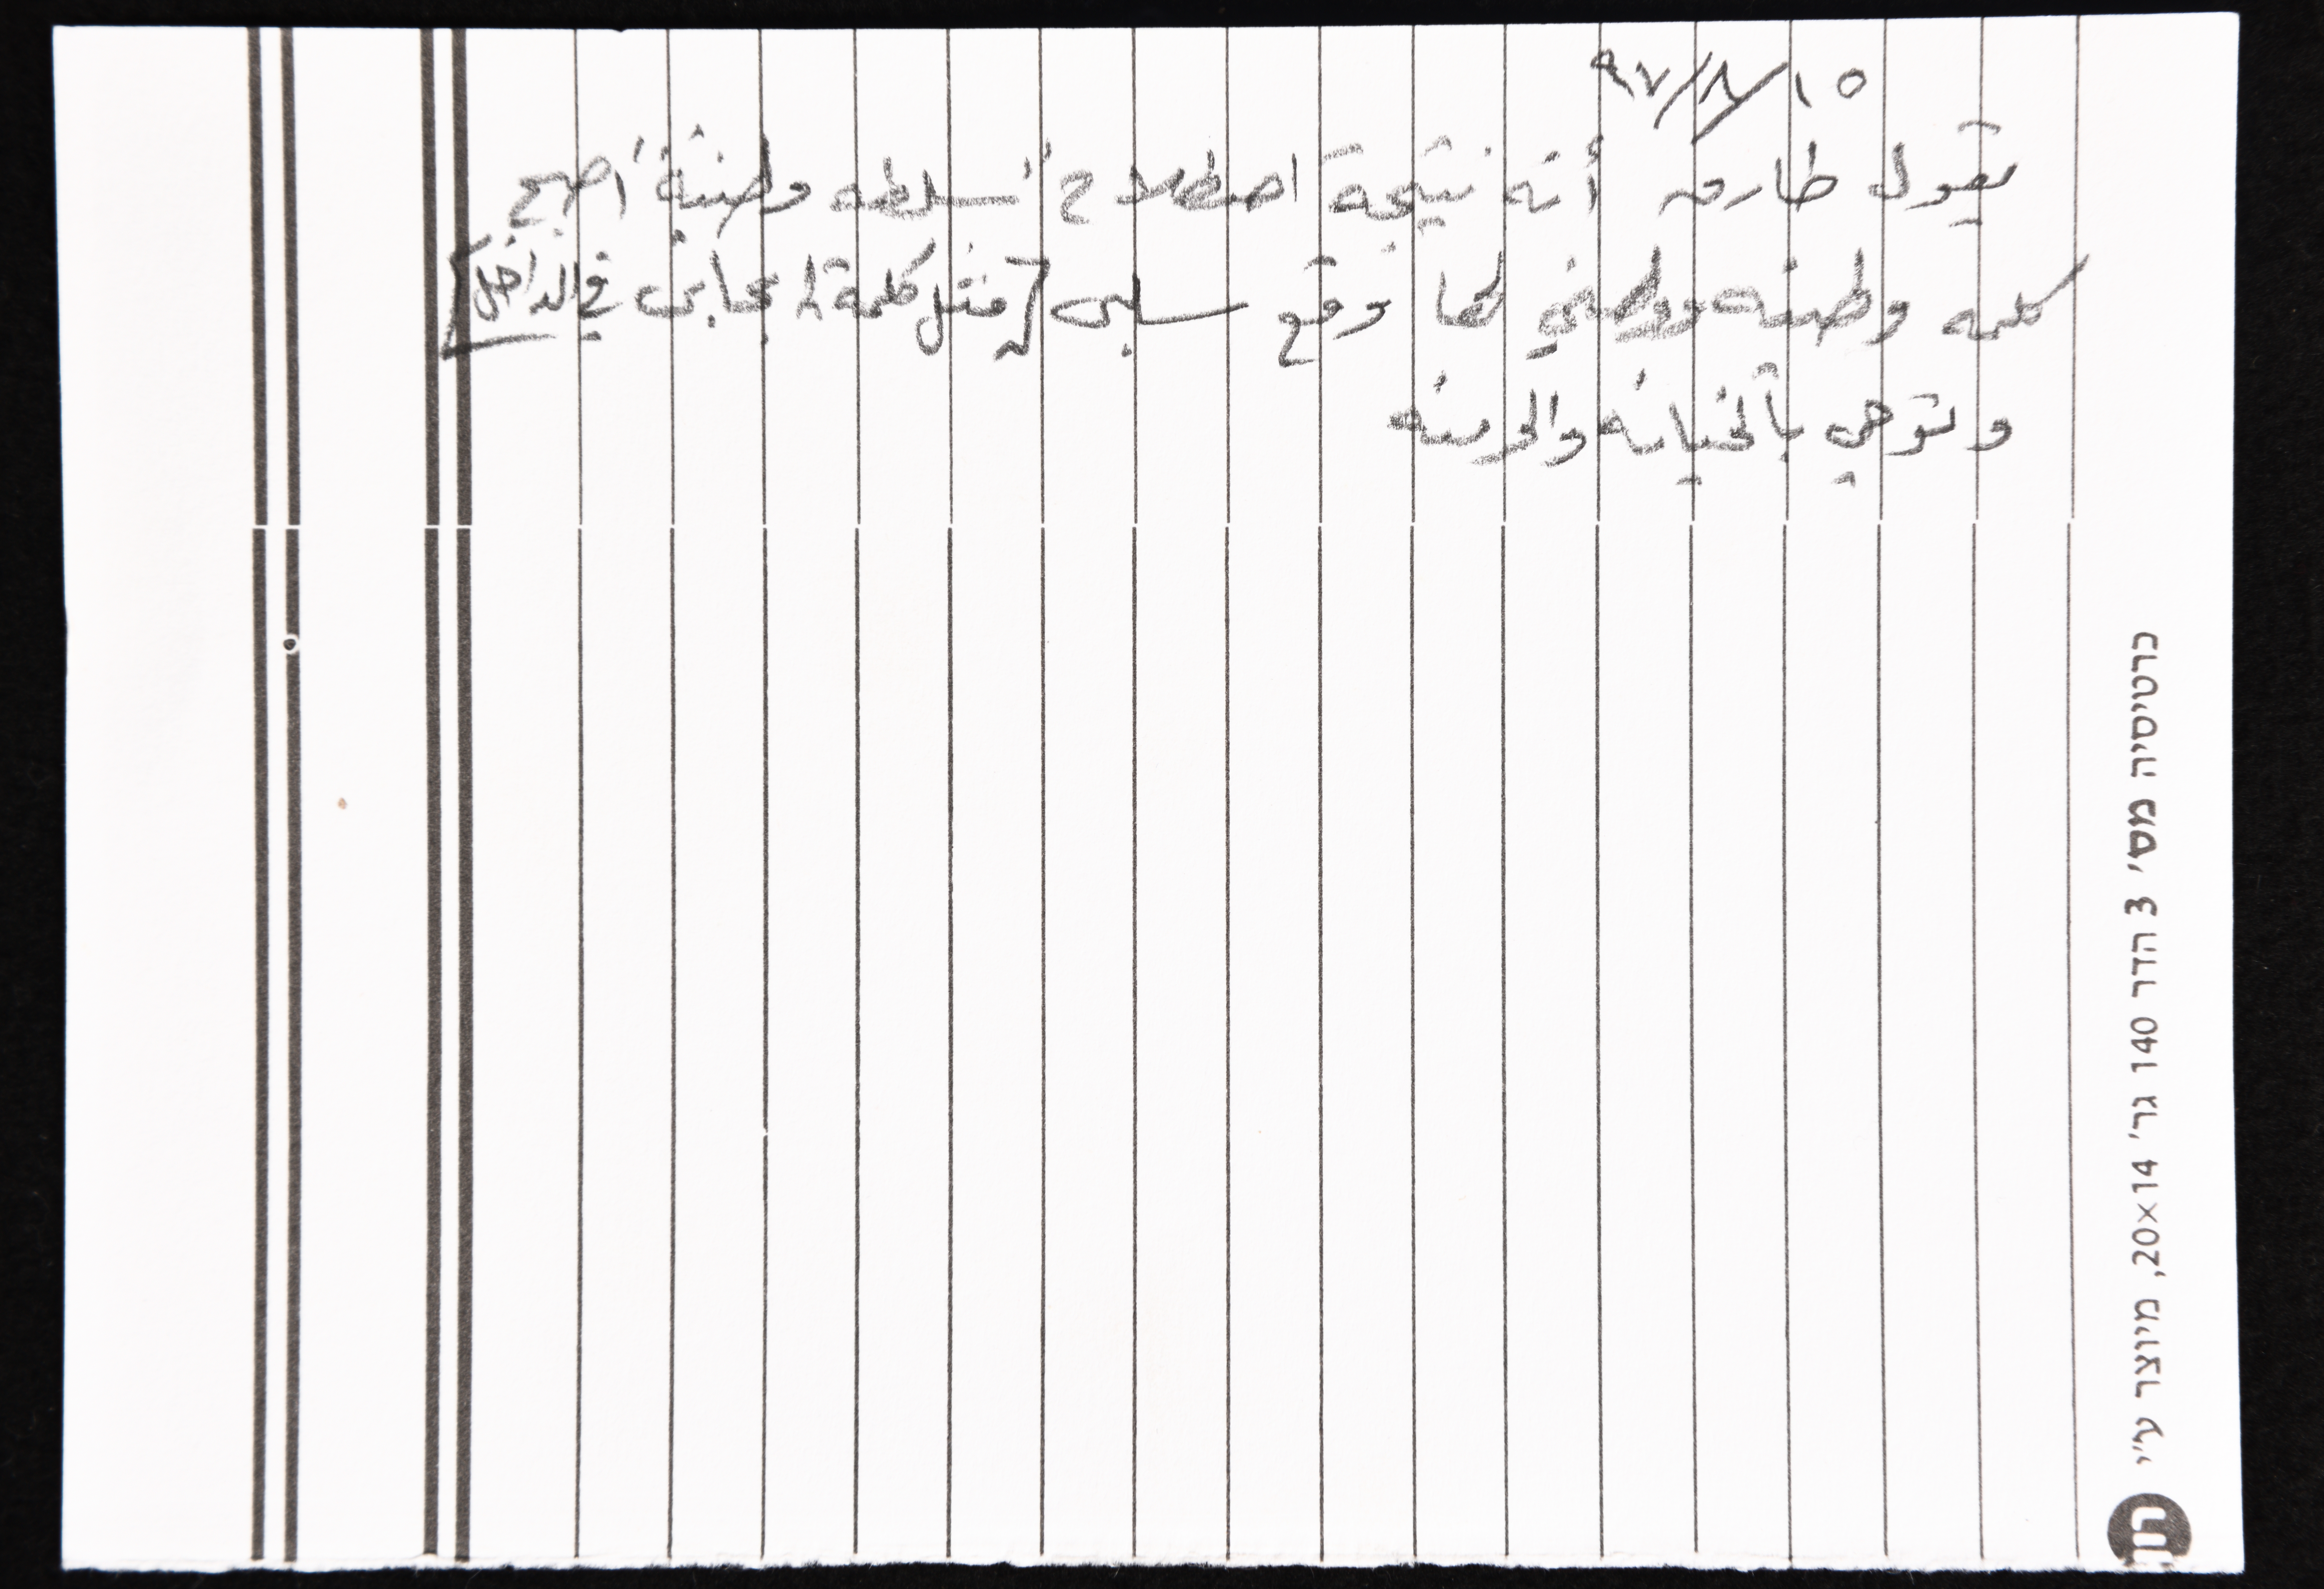 ١٥/٨/٩٧
يقول طارق أنه نتيجة اصطلاح "سلطه وطنية" اصبح
كلمه وطنيه ووطني لها وقع سلبي [مثل كلمة ايجابي في الداخل]
وتوحي بالخيانه والحرمنه
כרטיסיה מס' 3 הדר 140 גר' 20x14, מיוצר ע"י